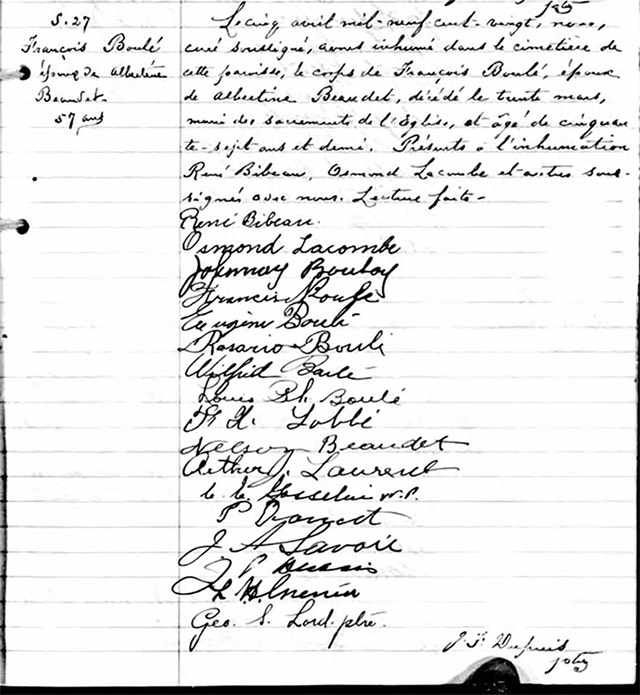 S. 27
François Boulé
époux de Albertine
Beaudet
57 ans
Le cinq avril mil-neuf cent-vingt, nous,
curé soussigné, avons inhumé dans le cimetière de
cette paroisse, le corps de François Boulé, époux
de Albertine Beaudet, décédé le trente mars,
muni des sacrements de l'Eglise, et âgé de cinquan
te-sept ans et demi. Présents à l'inhumation
René Bibeau, Osmond Lacombe et autres sous-
signés avec nous. Lecture faite-
René Bibeau.
Osmond Lacombe
Eugène Boulé
Rosario Boulé
Wilfrid
Louis Ph. Boulé
F. X. Labbé
Nelson Beaudet
Arthur J. Laurent
Gosselin
P
J. A. Savoie
Geo. S. Lord. ptre.
J. F. Dupuis
ptre